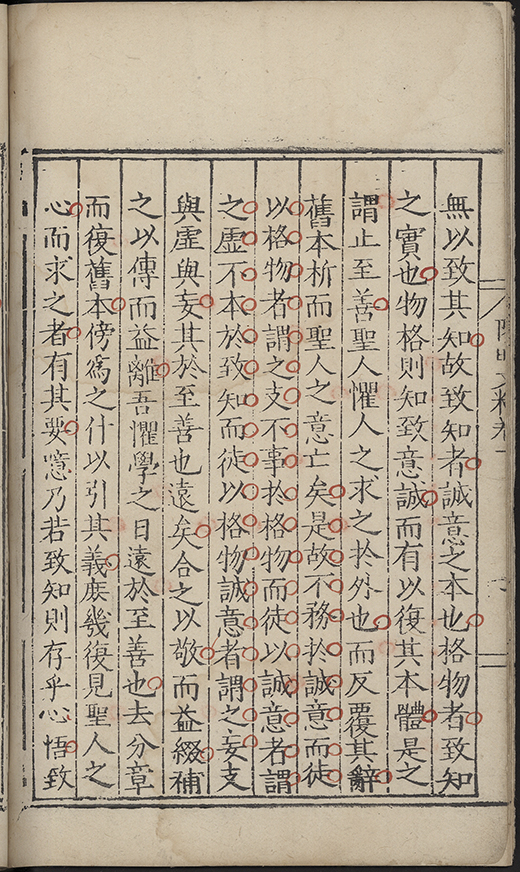 無以致其知故致知者誠意之本也格物者致知
之實也物格則知致意誠而有以復其本體是之
謂止至善聖人懼人之求之扵外也而反覆其辭
舊本析而聖人之意亡矣是故不務扵誠意而徒
以格物者謂之支不事扵格物而徒以誠意者謂
之虛不本於致知而徒以格物誠意者謂之妄支
與虛與妄其於至善也遠矣合之以敬而益綴補
之以傳而益離吾懼學之日遠於至善也去分章
而復舊本傍爲之什以引其義庶幾復見聖人之
心而求之者有其要噫乃若致知則存乎心悟致